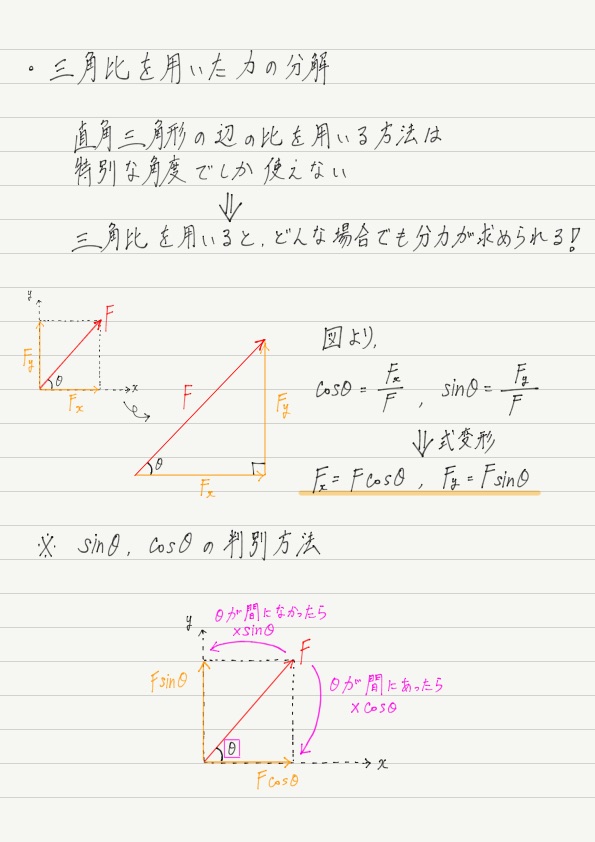 ・三角比を用いた力の分解
直角三角形の辺の比を用いる方法は
特別な角度でしか使えない
⇓
三角比を用いると、どんな場合でも分力が求められる!
y
F
Fy
θ
Fx
x
F
Fy
θ
Fx
図より,
cosθ = Fx/F , sinθ = Fy/F
⇓式変形
Fx = Fcosθ , Fy = Fsinθ
※ sinθ, cosθの判別方法
θが間になかったら
×sinθ
y
F
Fsinθ
θが間にあったら
×cosθ
θ
x
Fcosθ